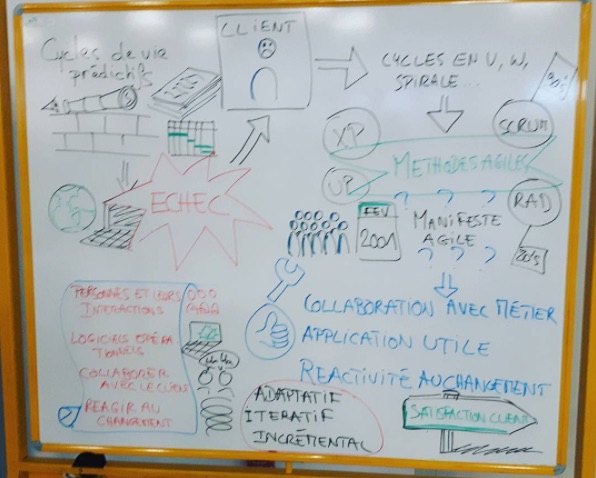 Cycles de vie
prédictifs
CLIENT
CYCLES EN V, W,
SPIRALE...
90's
SCRUM
XP
METHODES AGILES
UP
RAD
ECHEC
? ? ?
FEV
2001
MANIFESTE
AGILE
? ? ?
20's
PERSONNES ET LEURS
INTERACTIONS
LOGICIELS OPÉRA
TIONNELS
COLLABORER
AVEC LE CLIENT
RÉAGIR AU
CHANGEMENT
COLLABORATION AVEC MÉTIER
APPLICATION UTILE
REACTIVITÉ AU CHANGEMENT
ADAPTATIF
ITERATIF
INCRÉMENTAL
SATISFACTION CLIENT